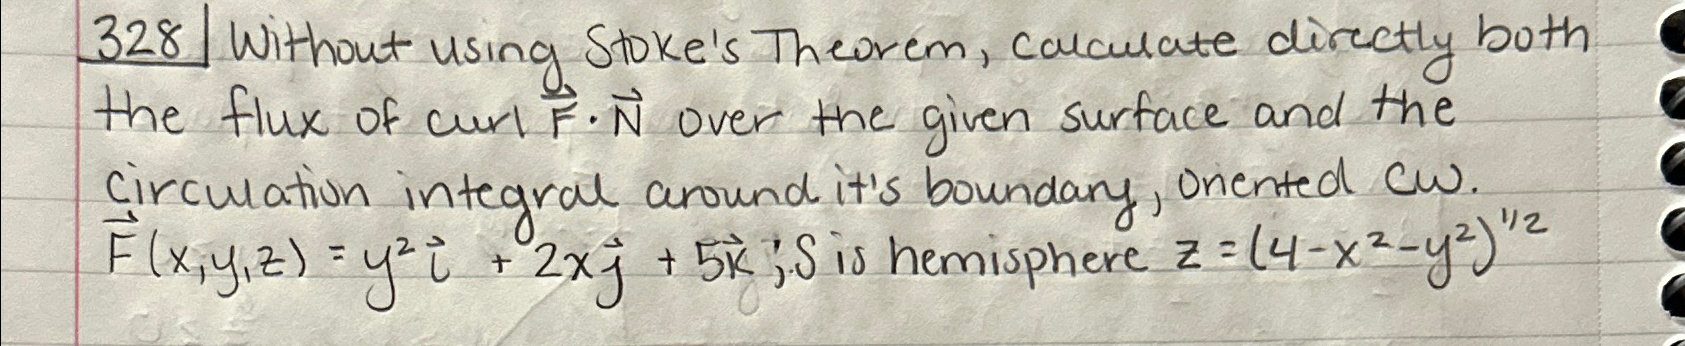 328| Without using Stoke's Theorem, calculate directly both
the flux of curl F⃗ · N⃗ over the given surface and the
circulation integral around it's boundary, oriented cw.
F⃗(x,y,z) = y²i⃗ + 2xj⃗ + 5k⃗; S is hemisphere z = (4-x²-y²)^1/2